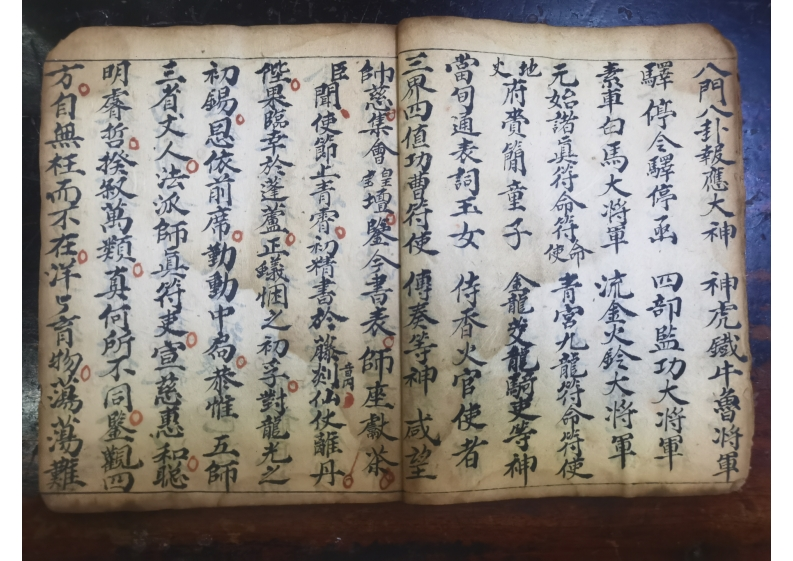 八門八卦報應大神　神虎鐵牛魯將軍
驛停令驛停函　四部監功大將軍
素車白馬大將軍　流金火鈴大將軍
元始諸真符命符命使　青宮九龍符命符使
地府賫簡童子　金龍茭龍騎吏等神
當旬通表詞玉女　侍香火官使者
三界四值功曹符使　傳奏等神　咸望
帥慈集會壇鑒今書表師座獻茶
臣聞使節上青霄初精書於藤剡仙仗離丹
陛果臨幸於蓬蘆正蟻悃之初孚對龍光之
初錫恩依前席勤動中扃恭惟　五師
三省文人法派師真符吏宣慈惠和聰
明睿哲揆敘萬類真何所不同鑒觀四
方自無枉而不在洋㇏育物蕩蕩難